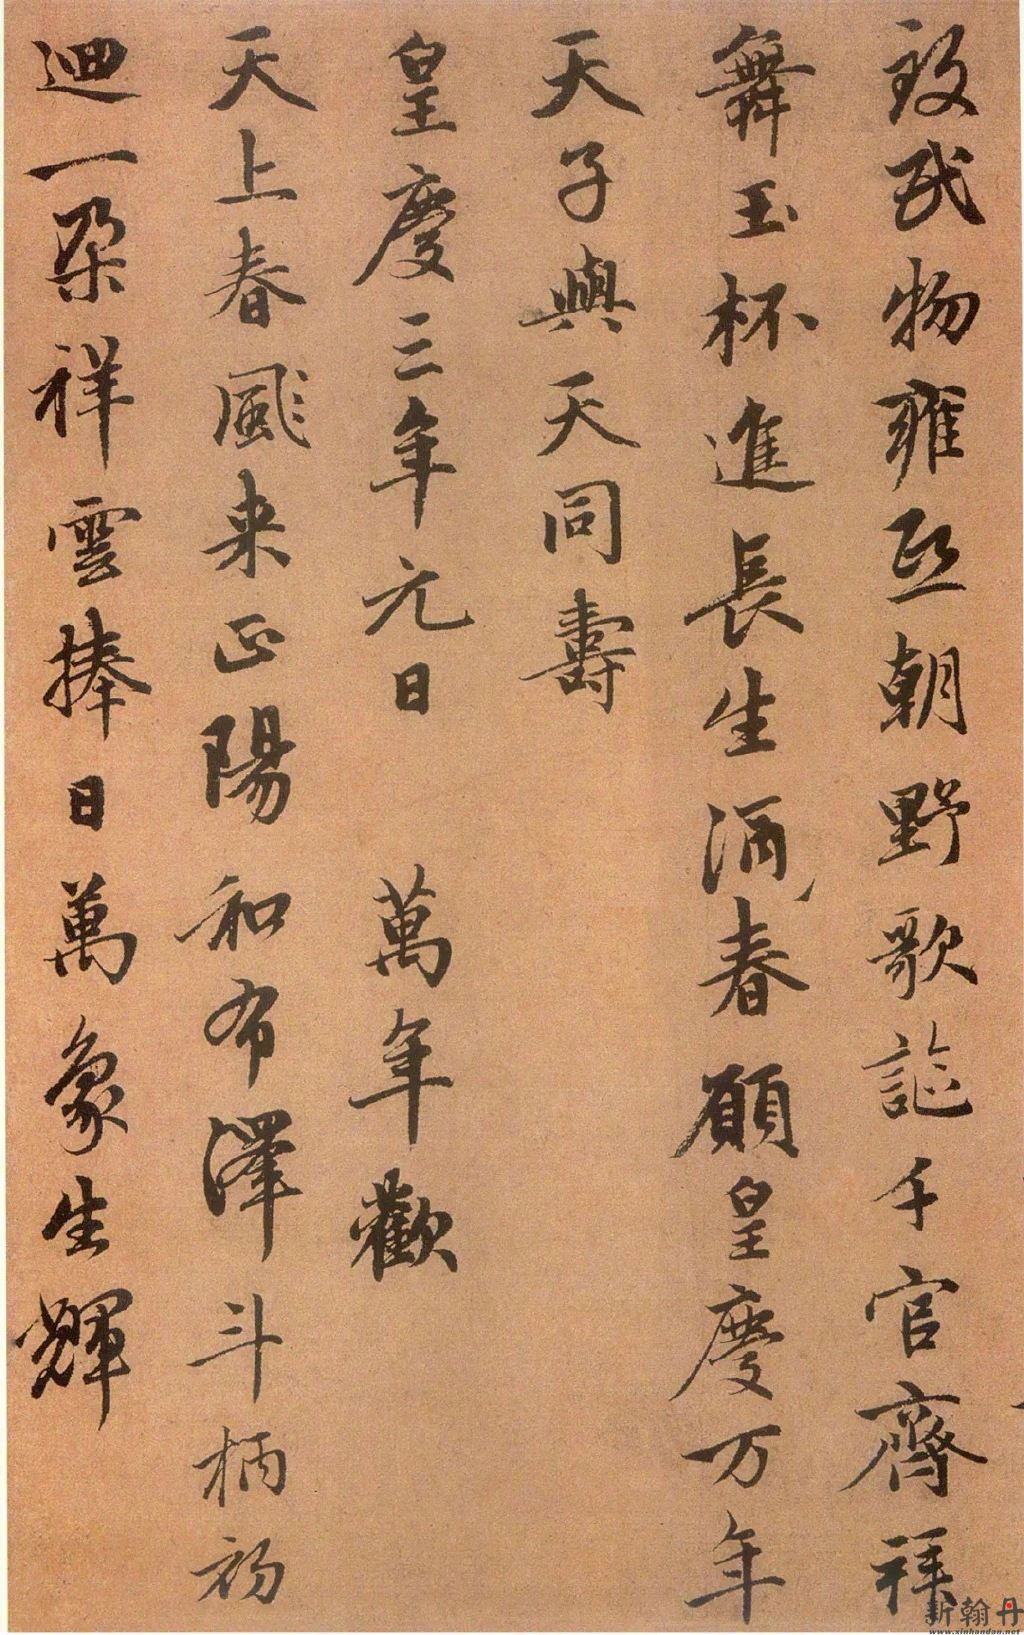 致民物雍熙朝野歌謳千官齊拜
舞玉杯進長生酒春願皇慶万年
天子與天同壽
皇慶三年元日 萬年歡
天上春風来正陽和布澤斗柄初
迴一朵祥雲捧日萬象生輝
新翰丹
www.xinhandan.net